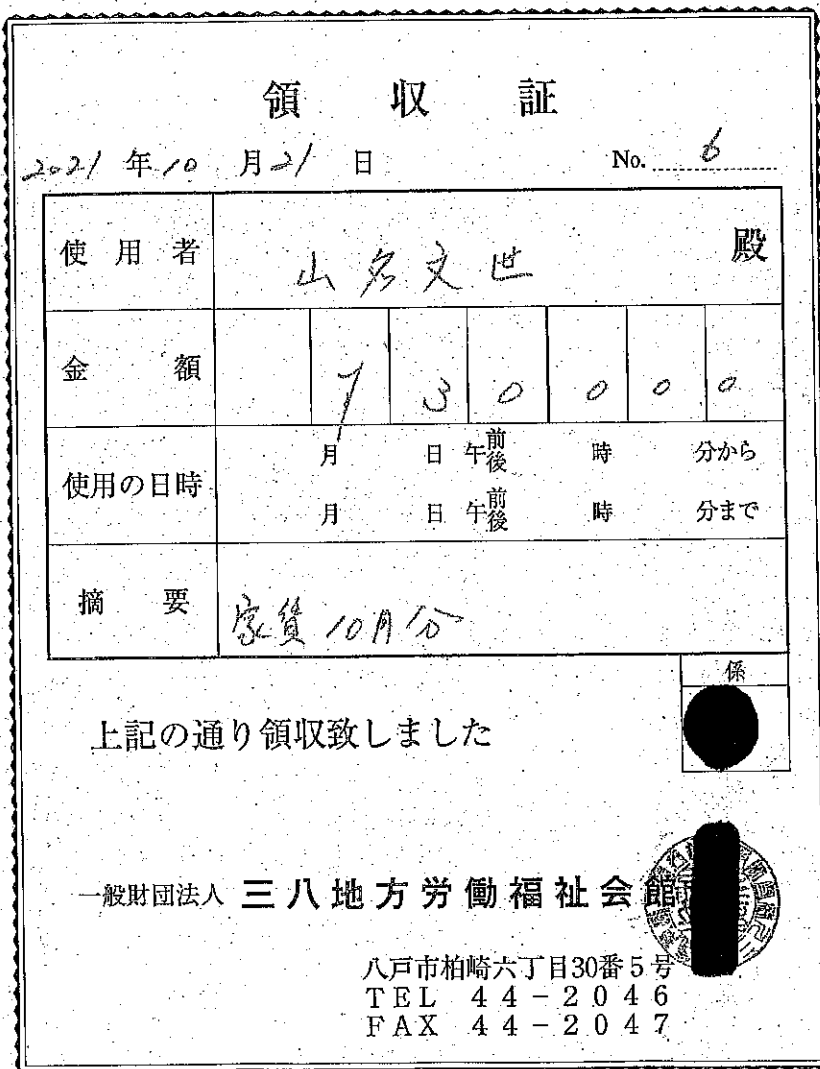 領収証
2021年10月21日 No. 6
使用者 山名文世 殿
金額 3 0 0 0 0
使用の日時 月 日 午前後 時 分から
月 日 午前後 時 分まで
摘要 家賃10月分
係
上記の通り領収致しました
一般財団法人 三八地方労働福祉会館
八戸市柏崎六丁目30番5号
TEL 44-2046
FAX 44-2047